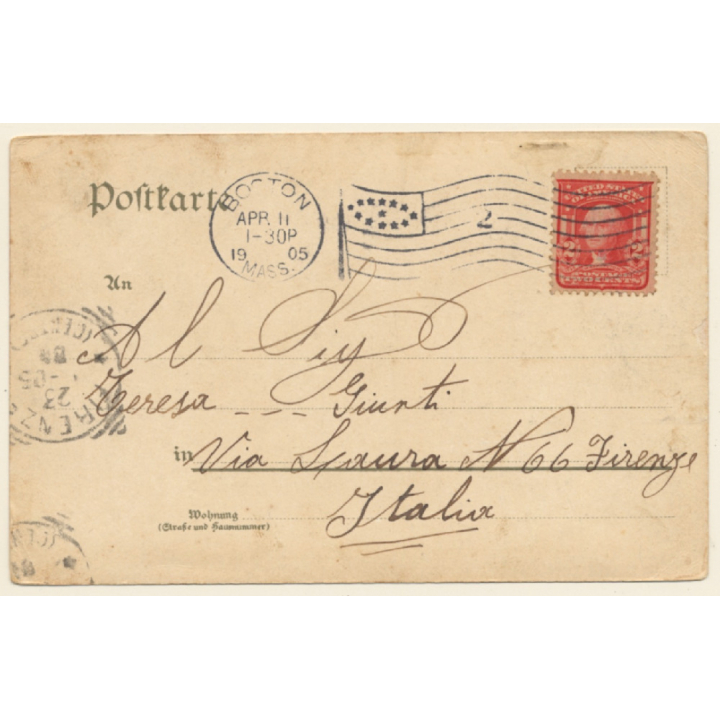 Postkarte
BOSTON
APR. 11
1-30P
1905
MASS.
2
UNITED STATES
2 2
TWO CENTS
An
Al Sig
Teresa --- Giunti
in Via Laura N 66 Firenze
Italia
Wohnung
(Straße und Hausnummer)
(CENTRO)
23
05